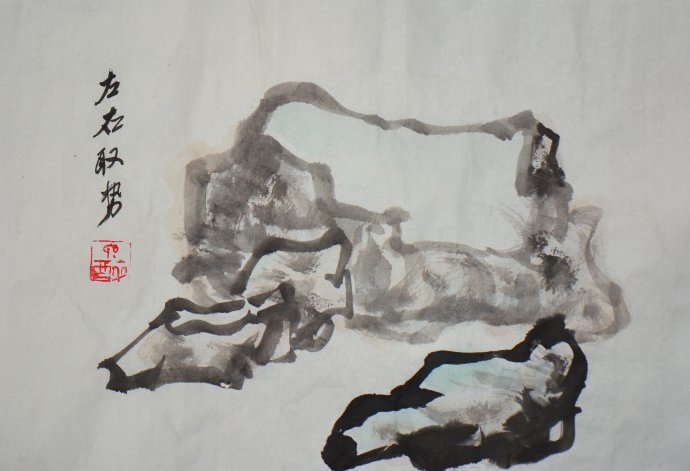 左右取势